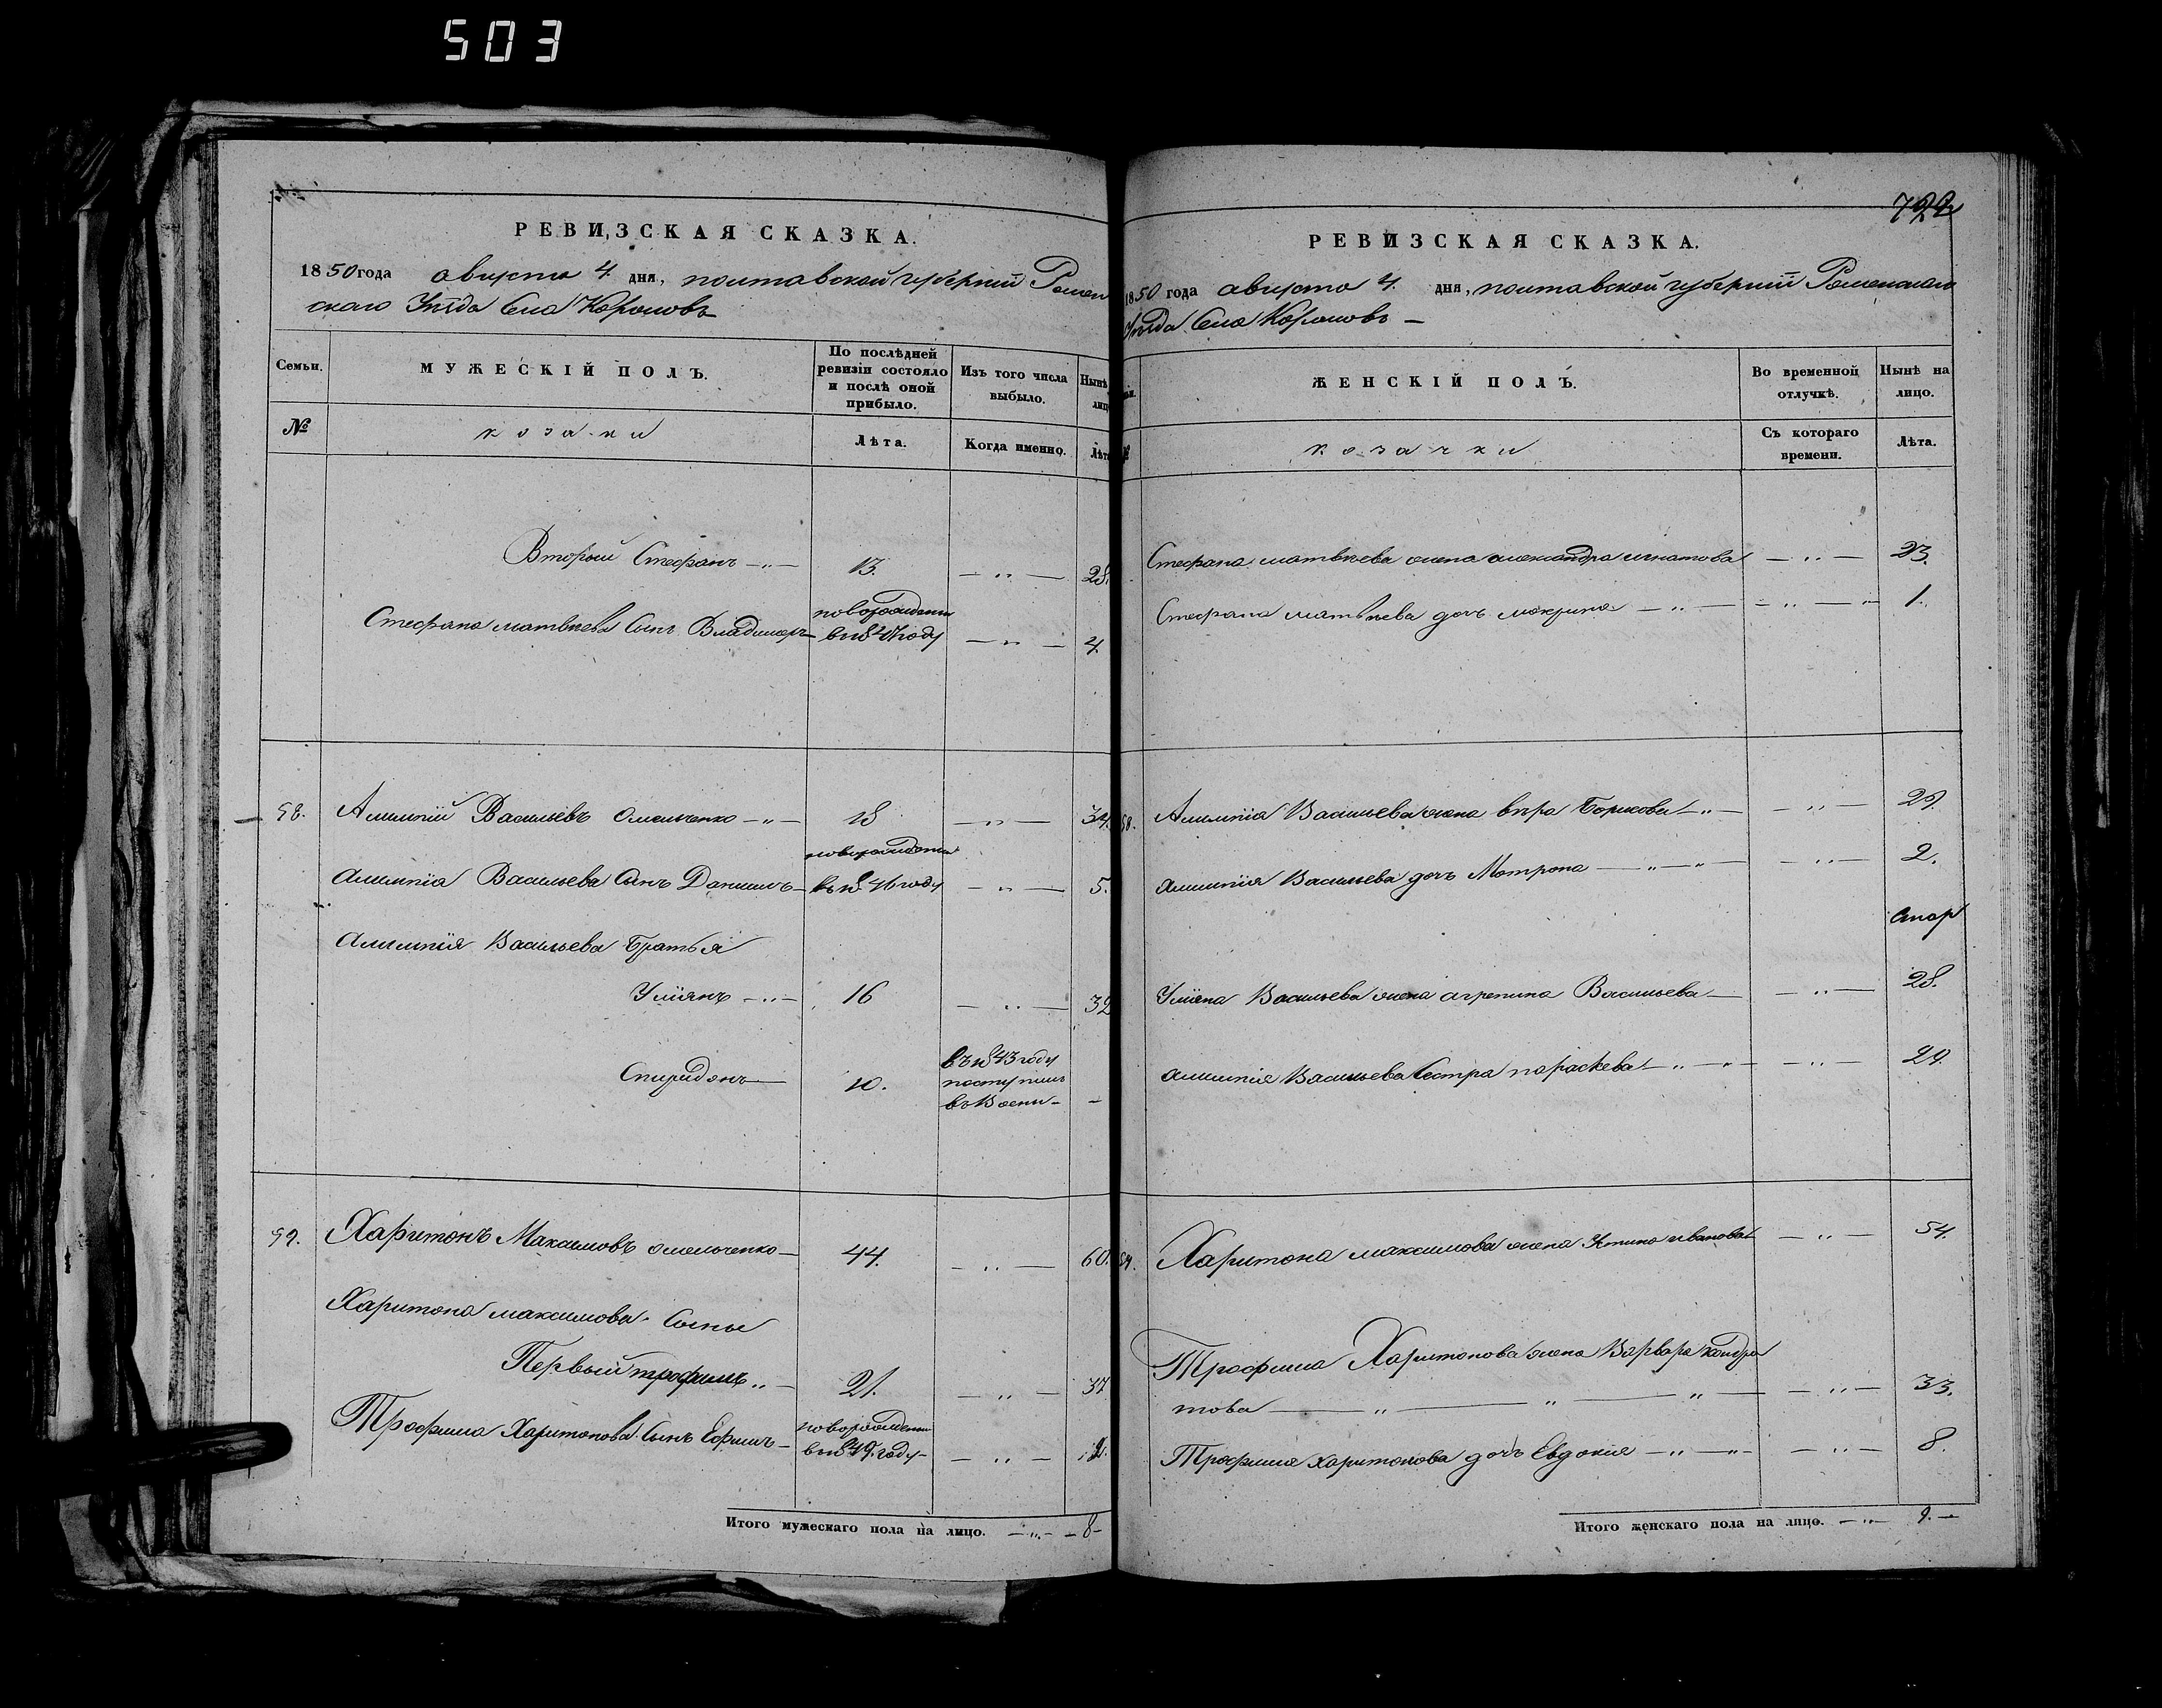 503
РЕВИЗСКАЯ СКАЗКА.
1850 года августа 4. дня, полтавской губерніи Ромен
скаго Уѣзда Села Корововъ
Семьи.
МУЖЕСКІЙ ПОЛЪ.
По послѣдней ревизіи состояло и послѣ оной прибыло.
Изъ того числа выбыло.
Нынѣ лиц
№
козаки
Лѣта.
Когда именно.
Лѣта
Вторый Стефанъ 13. 28.
новорожденъ
Стефана матвѣева Сынъ Владимеръ в 1847 году 4.
58. Алимпій Васильевъ Омельченко 18 34.
новорожденъ
алимпія Васильева Сынъ Данилъ въ 18 46 году 5.
алимпія Васильева Братья
Уліянъ 16 32
въ 1843 году
Спиридонъ 10. поступилъ
въ Военн
59. Харитонъ Максимовъ омельченко 44. 60.
Харитона максимова Сыны
Первый трофимъ 21. 37
новорожденъ
Трофима Харитонова Сынъ Ефимъ в 1849. году
Итого мужескаго пола на лицо. 8
722
РЕВИЗСКАЯ СКАЗКА.
1850 года августа 4. дня, полтавской губерніи Роменскаго
Уѣзда Села Корововъ
ЖЕНСКІЙ ПОЛЪ.
Во временной отлучкѣ.
Нынѣ на лицо.
козачки
Съ котораго времени.
Лѣта.
Стефана матвѣева жена александра игнатова 23.
Стефана матвѣева дочь макрина 1.
58. Алимпія Васильева жена вѣра Борисова 29.
алимпія Васильева дочь Мотрона 2.
стар
Уліяна Васильева жена агрепина Васильева 28.
алимпія Васильева Сестра параскева 29.
59. Харитона максимова жена Устина иванова 54.
Трофима Харитонова жена Варвара кондра
това 33.
Трофима харитонова дочь Евдокія 8.
Итого женскаго пола на лицо. 9.